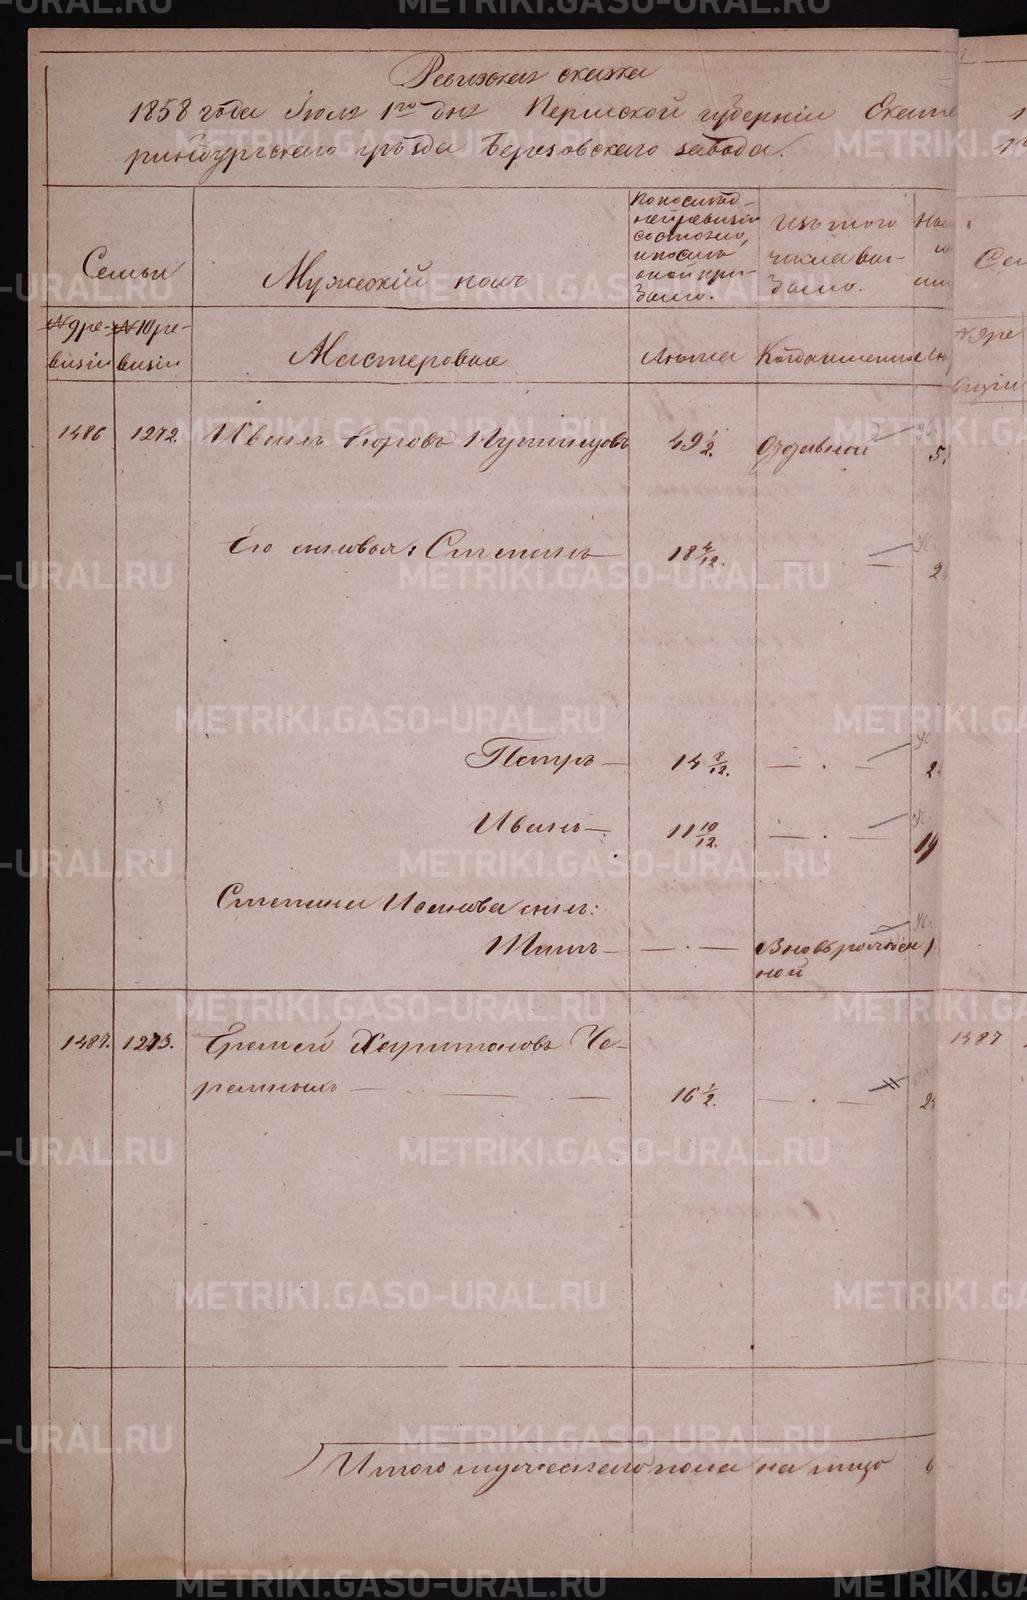 Ревизская сказка
1858 года Июля 1го дня Пермской губернiи Екате
ринбургскаго уѣзда Березовскаго завода.
Семьи
Мужескiй полъ
По послѣд-
ней ревизiи
состояло,
и послѣ
оной при-
было.
Изъ того
числа вы-
было.
№ 9 ре-
визiи
№ 10 ре-
визiи
Мастеровые
Лѣта
Когда именно
1486 1272. Иванъ 49 1/2. Отдѣльной
Его сыновья: Степанъ 18 4/12. — . —
Петръ — 14 2/12. — . —
Иванъ — 11 10/12. — . —
Степана Иванова сынъ:
— . — Вновьрожден
ной
1487. 1273. Еремей Харитоновъ Че-
ремныхъ — 16 1/2. — . —
Итого мужескаго пола на лицо
№ 9 ре
1487
METRIKI.GASO-URAL.RU